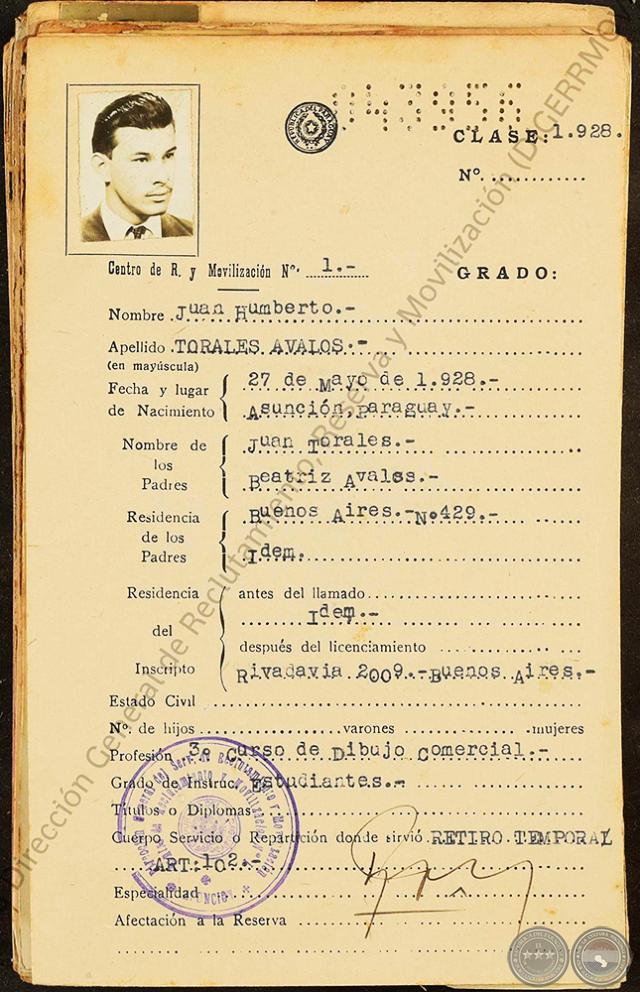 043956
REPUBLICA DEL PARAGUAY
CLASE: 1.928.
Nº. ............
Centro de R. y Movilización Nº. 1.-
GRADO:
Nombre Juan Humberto.-
Apellido TORALES AVALOS.-
(en mayúscula)
Fecha y lugar de Nacimiento 27 de Mayo de 1.928.-
Asunción, Paraguay.-
Nombre de los Padres Juan Torales.-
Beatriz Avalos.-
Residencia de los Padres Buenos Aires.- Nº429.-
Idem.
Residencia del Inscripto antes del llamado
Idem.-
después del licenciamiento
Rivadavia 2009.-Buenos Aires.-
Estado Civil
Nº. de hijos varones mujeres
Profesión 3º Curso de Dibujo Comercial.-
Grado de Instruc. Estudiantes.-
Títulos o Diplomas
Cuerpo Servicio o Repartición donde sirvió RETIRO TEMPORAL
ART:102.-
Especialidad
Afectación a la Reserva
Dirección General de Reclutamiento, Reserva y Movilización (DIGERRMO